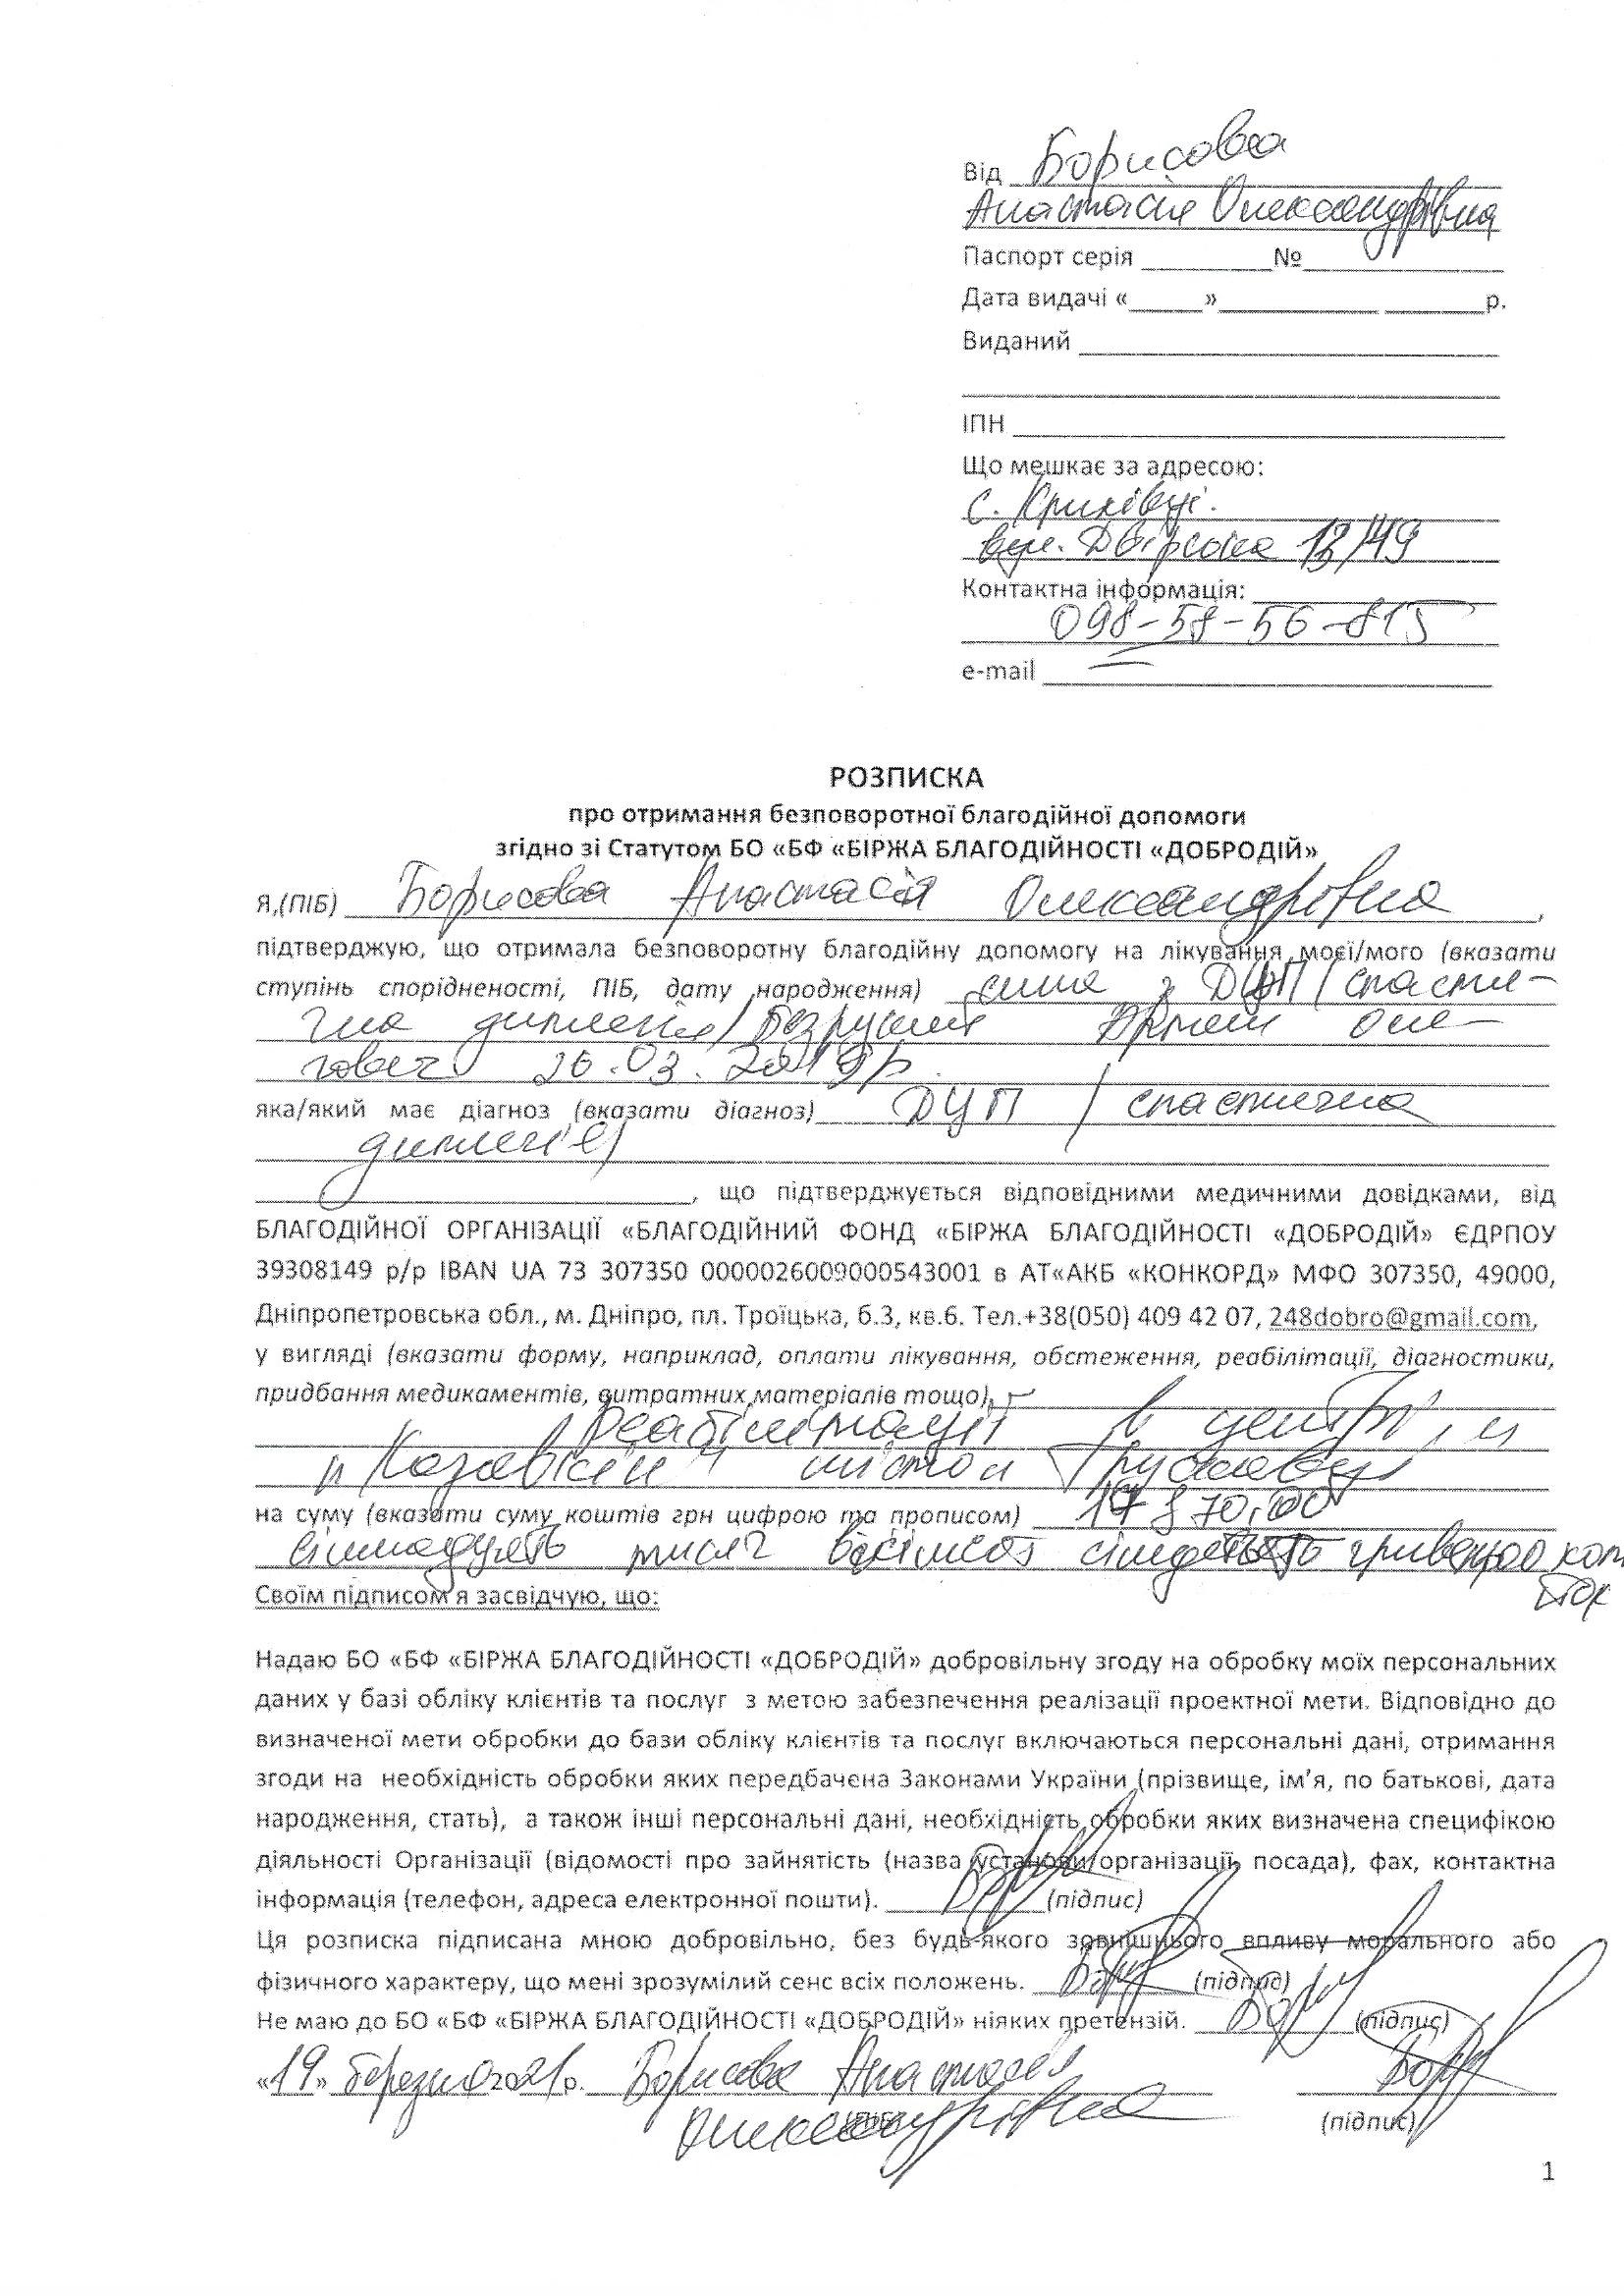 Від Борисова
Анастасія Олександрівна
Паспорт серія __________№_______________
Дата видачі «_____»____________ _______р.
Виданий ________________________________
ІПН _____________________________________
Що мешкає за адресою:
с. Крихівці.
вул. Двірська 13/149
Контактна інформація: ___________________
098-58-56-815
e-mail __________________________________
РОЗПИСКА
про отримання безповоротної благодійної допомоги
згідно зі Статутом БО «БФ «БІРЖА БЛАГОДІЙНОСТІ «ДОБРОДІЙ»
Я,(ПІБ) Борисова Анастасія Олександрівна,
підтверджую, що отримала безповоротну благодійну допомогу на лікування моєї/мого (вказати
ступінь спорідненості, ПІБ, дату народження) сина з ДЦП (спасти-
чна диплегія) Безрукий
26.03.2019р.
яка/який має діагноз (вказати діагноз) ДЦП (спастична
диплегія)
, що підтверджується відповідними медичними довідками, від
БЛАГОДІЙНОЇ ОРГАНІЗАЦІЇ «БЛАГОДІЙНИЙ ФОНД «БІРЖА БЛАГОДІЙНОСТІ «ДОБРОДІЙ» ЄДРПОУ
39308149 р/р IBAN UA 73 307350 0000026009000543001 в АТ«АКБ «КОНКОРД» МФО 307350, 49000,
Дніпропетровська обл., м. Дніпро, пл. Троїцька, б.3, кв.6. Тел.+38(050) 409 42 07, 248dobro@gmail.com,
у вигляді (вказати форму, наприклад, оплати лікування, обстеження, реабілітації, діагностики,
придбання медикаментів, витратних матеріалів тощо),
реабілітації в центрі
"Козявкін" містои Трускавці
на суму (вказати суму коштів грн цифрою та прописом) 17 870,00
сімнадцять тисяч вісімсот сімдесят гривень 00 коп
Своїм підписом я засвідчую, що:
Надаю БО «БФ «БІРЖА БЛАГОДІЙНОСТІ «ДОБРОДІЙ» добровільну згоду на обробку моїх персональних
даних у базі обліку клієнтів та послуг з метою забезпечення реалізації проектної мети. Відповідно до
визначеної мети обробки до бази обліку клієнтів та послуг включаються персональні дані, отримання
згоди на необхідність обробки яких передбачена Законами України (прізвище, ім'я, по батькові, дата
народження, стать), а також інші персональні дані, необхідність обробки яких визначена специфікою
діяльності Організації (відомості про зайнятість (назва установи/організації, посада), фах, контактна
інформація (телефон, адреса електронної пошти). ____________(підпис)
Ця розписка підписана мною добровільно, без будь-якого зовнішнього впливу морального або
фізичного характеру, що мені зрозумілий сенс всіх положень. ____________(підпис)
Не маю до БО «БФ «БІРЖА БЛАГОДІЙНОСТІ «ДОБРОДІЙ» ніяких претензій. ____________(підпис)
«19» березня 2021р. Борисова Анастасія
Олександрівна
(підпис)
1